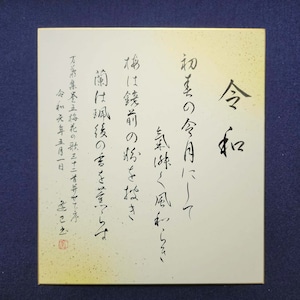 令和
初春の令月にして
氣淑く風和らき
梅は鏡前の粉を披き
蘭は珮後の香を薫らす
万葉集巻五梅花の歌三十二首并せて序
令和元年五月一日